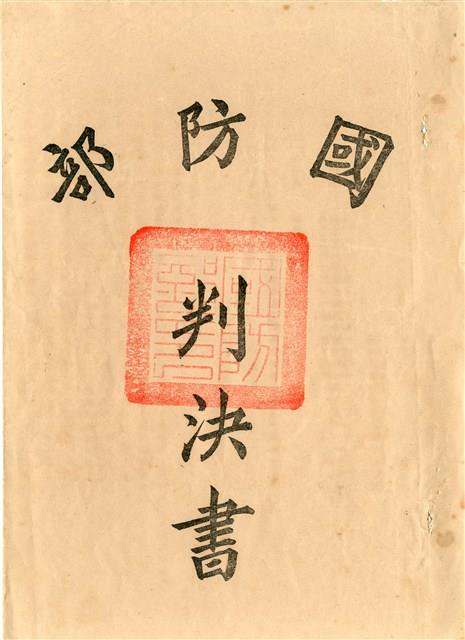 國防部
判決書